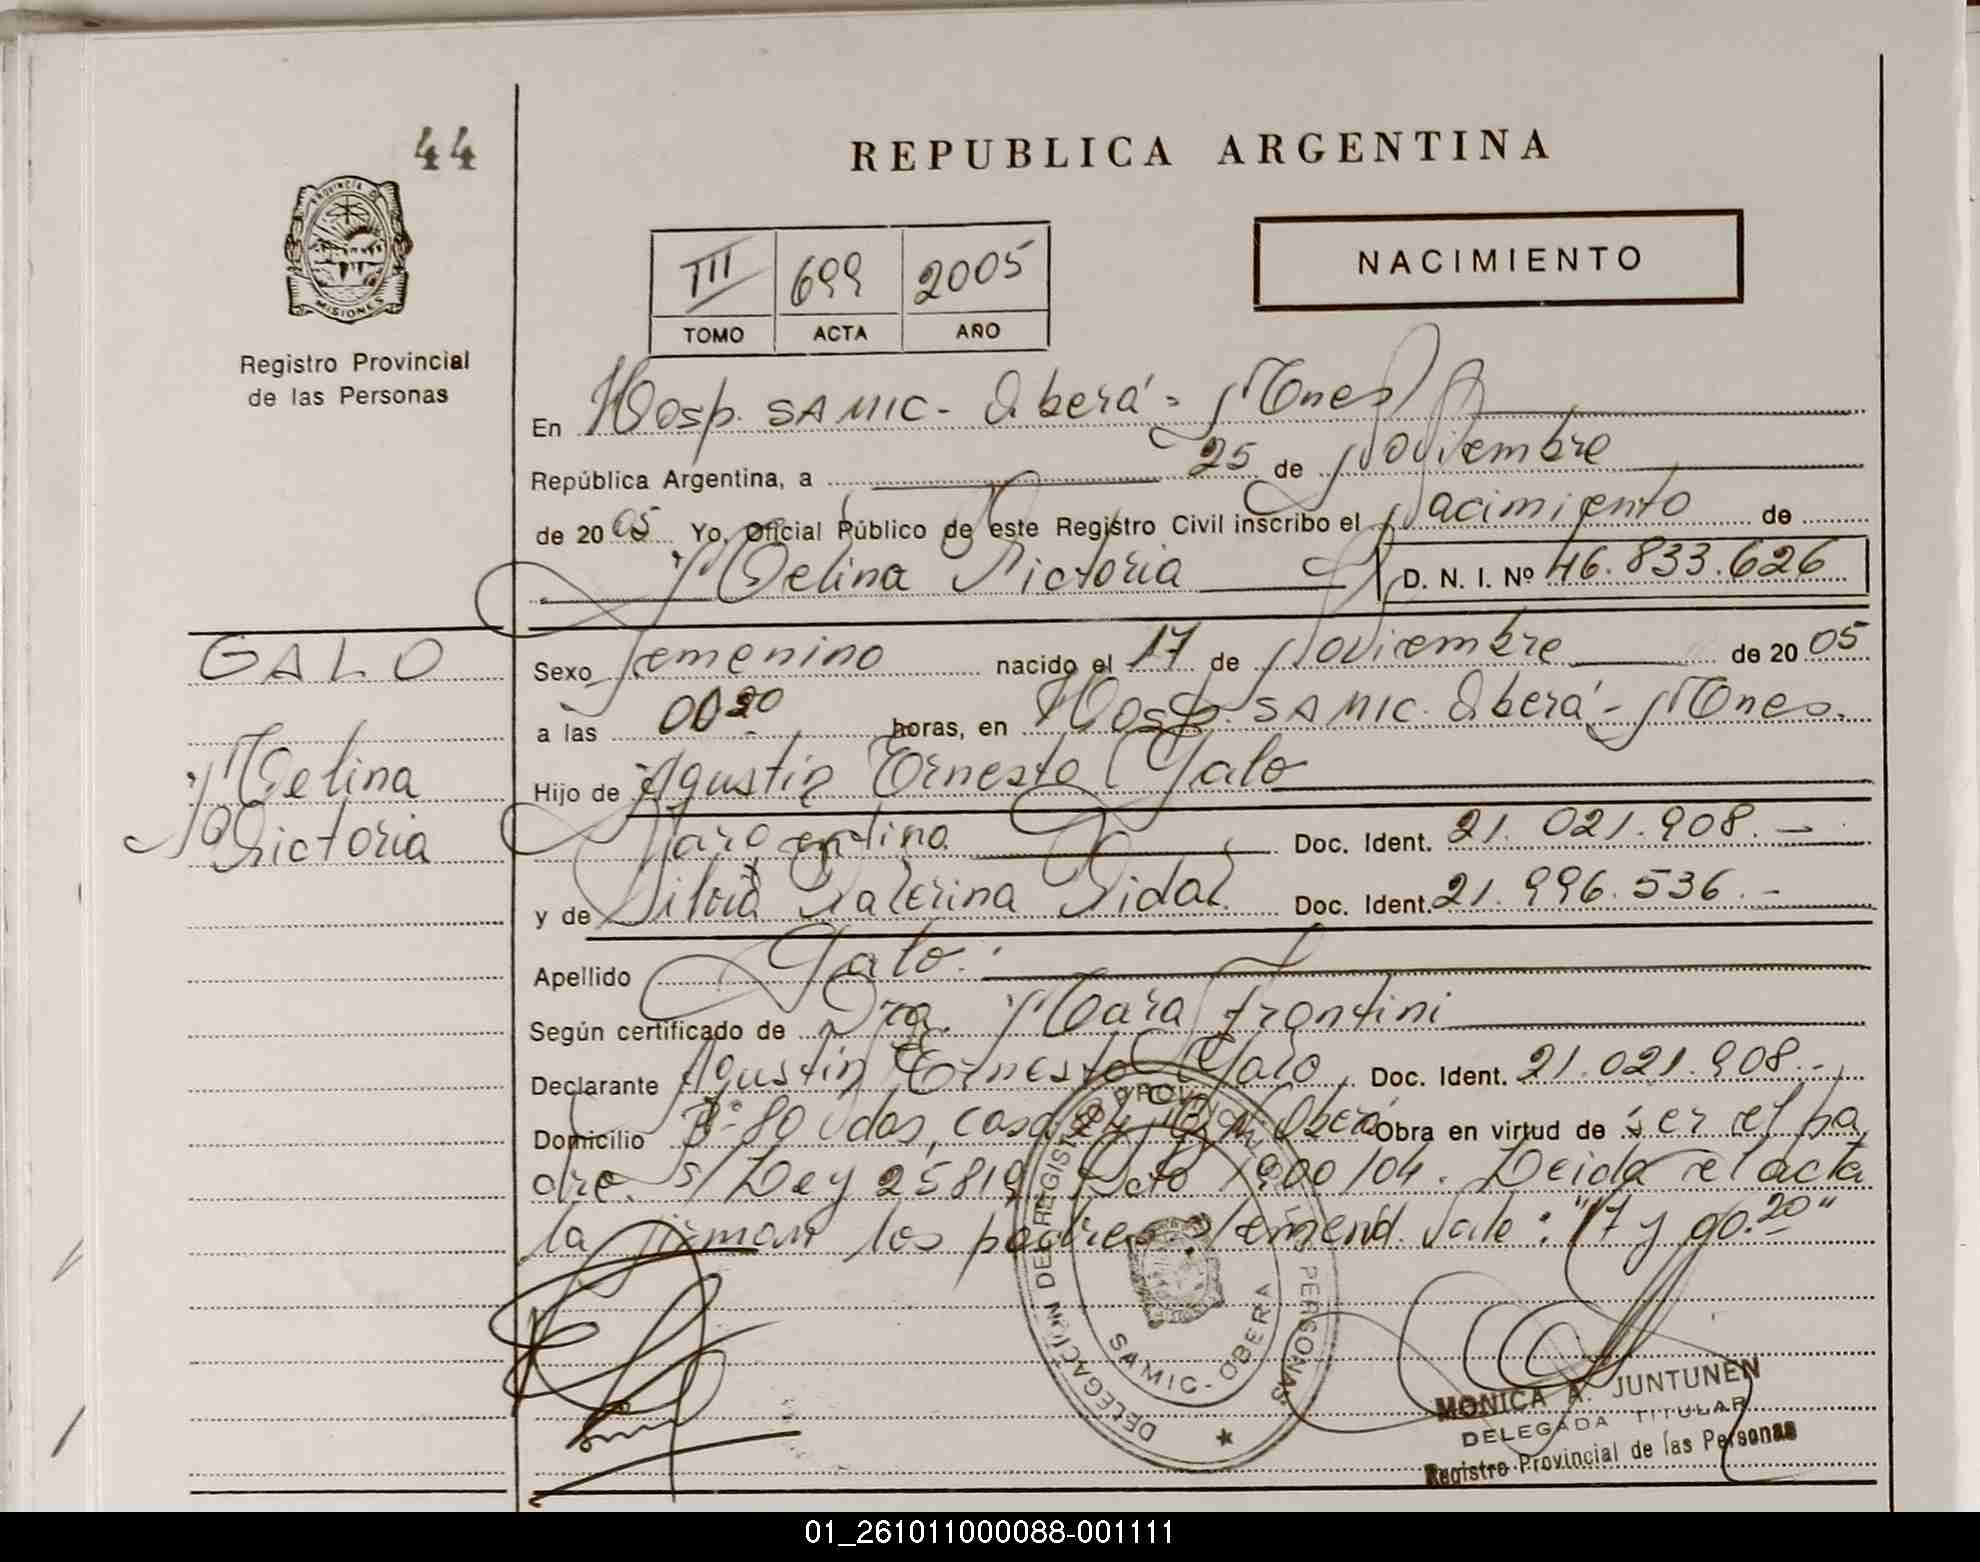 44
REPUBLICA ARGENTINA
PROVINCIA DE
MISIONES
Registro Provincial
de las Personas
III 699 2005
TOMO ACTA AÑO
NACIMIENTO
En Hosp. SAMIC - Oberá - Mnes
República Argentina, a 25 de Noviembre
de 2005 Yo, Oficial Público de este Registro Civil inscribo el Nacimiento de
Melina Victoria D. N. I. Nº 46.833.626
GALO
Melina
Victoria
Sexo femenino nacido el 17 de Noviembre de 2005
a las 00 20 horas, en Hosp. SAMIC. Oberá - Mnes.
Hijo de Agustín Ernesto Galo
Argentino Doc. Ident. 21.021.908.-
y de Silvia Valerina Vidal Doc. Ident. 21.996.536.-
Apellido Galo.
Según certificado de Dra. Mara Frontini
Declarante Agustín Ernesto Galo Doc. Ident. 21.021.908.-
Domicilio Bº 80 Vdas, casa Oberá Obra en virtud de ser el pa
dre. s/ Ley 25819 Dcto 1900/04. Leida el acta
la firman los padres. emend. Vale: "17 y 00.20"
DELEGACIÓN DEL REGISTRO PROVINCIAL DE LAS PERSONAS
SAMIC - OBERA
MONICA A. JUNTUNEN
DELEGADA TITULAR
Registro Provincial de las Personas
01_261011000088-001111